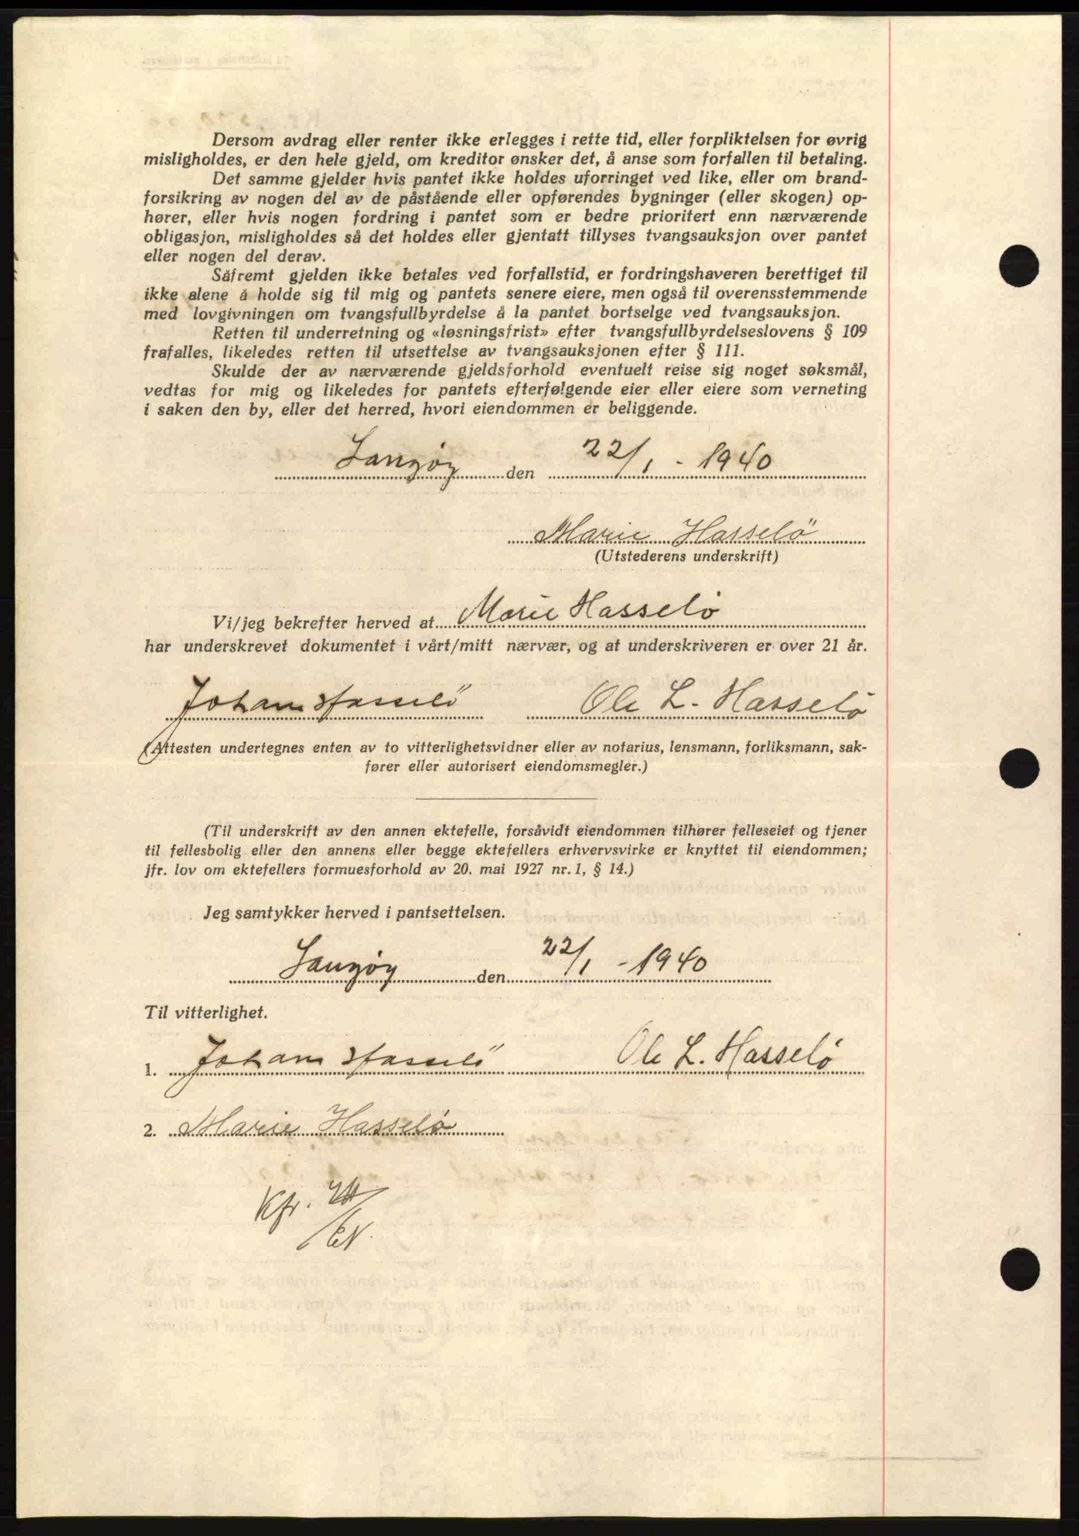 Dersom avdrag eller renter ikke erlegges i rette tid, eller forpliktelsen for øvrig
misligholdes, er den hele gjeld, om kreditor ønsker det, å anse som forfallen til betaling.
Det samme gjelder hvis pantet ikke holdes uforringet ved like, eller om brand-
forsikring av nogen del av de påstående eller opførendes bygninger (eller skogen) op-
hører, eller hvis nogen fordring i pantet som er bedre prioritert enn nærværende
obligasjon, misligholdes så det holdes eller gjentatt tillyses tvangsauksjon over pantet
eller nogen del derav.
Såfremt gjelden ikke betales ved forfallstid, er fordringshaveren berettiget til
ikke alene å holde sig til mig og pantets senere eiere, men også til overensstemmende
med lovgivningen om tvangsfullbyrdelse å la pantet bortselge ved tvangsauksjon.
Retten til underretning og «løsningsfrist» efter tvangsfullbyrdelseslovens § 109
frafalles, likeledes retten til utsettelse av tvangsauksjonen efter § 111.
Skulde der av nærværende gjeldsforhold eventuelt reise sig noget søksmål,
vedtas for mig og likeledes for pantets efterfølgende eier eller eiere som verneting
i saken den by, eller det herred, hvori eiendommen er beliggende.
Langøy den 22/1 - 1940
Marie Hasselö
(Utstederens underskrift)
Vi/jeg bekrefter herved at Marie Hasselø
har underskrevet dokumentet i vårt/mitt nærvær, og at underskriveren er over 21 år.
Johan Hasselö Ole L. Hasselø
(Attesten undertegnes enten av to vitterlighetsvidner eller av notarius, lensmann, forliksmann, sak-
fører eller autorisert eiendomsmegler.)
(Til underskrift av den annen ektefelle, forsåvidt eiendommen tilhører felleseiet og tjener
til fellesbolig eller den annens eller begge ektefellers erhvervsvirke er knyttet til eiendommen;
jfr. lov om ektefellers formuesforhold av 20. mai 1927 nr. 1, § 14.)
Jeg samtykker herved i pantsettelsen.
Langøy den 22/1 - 1940
Til vitterlighet.
1. Johan Hasselö Ole L. Hasselø
2. Marie Hasselø
Kfr.